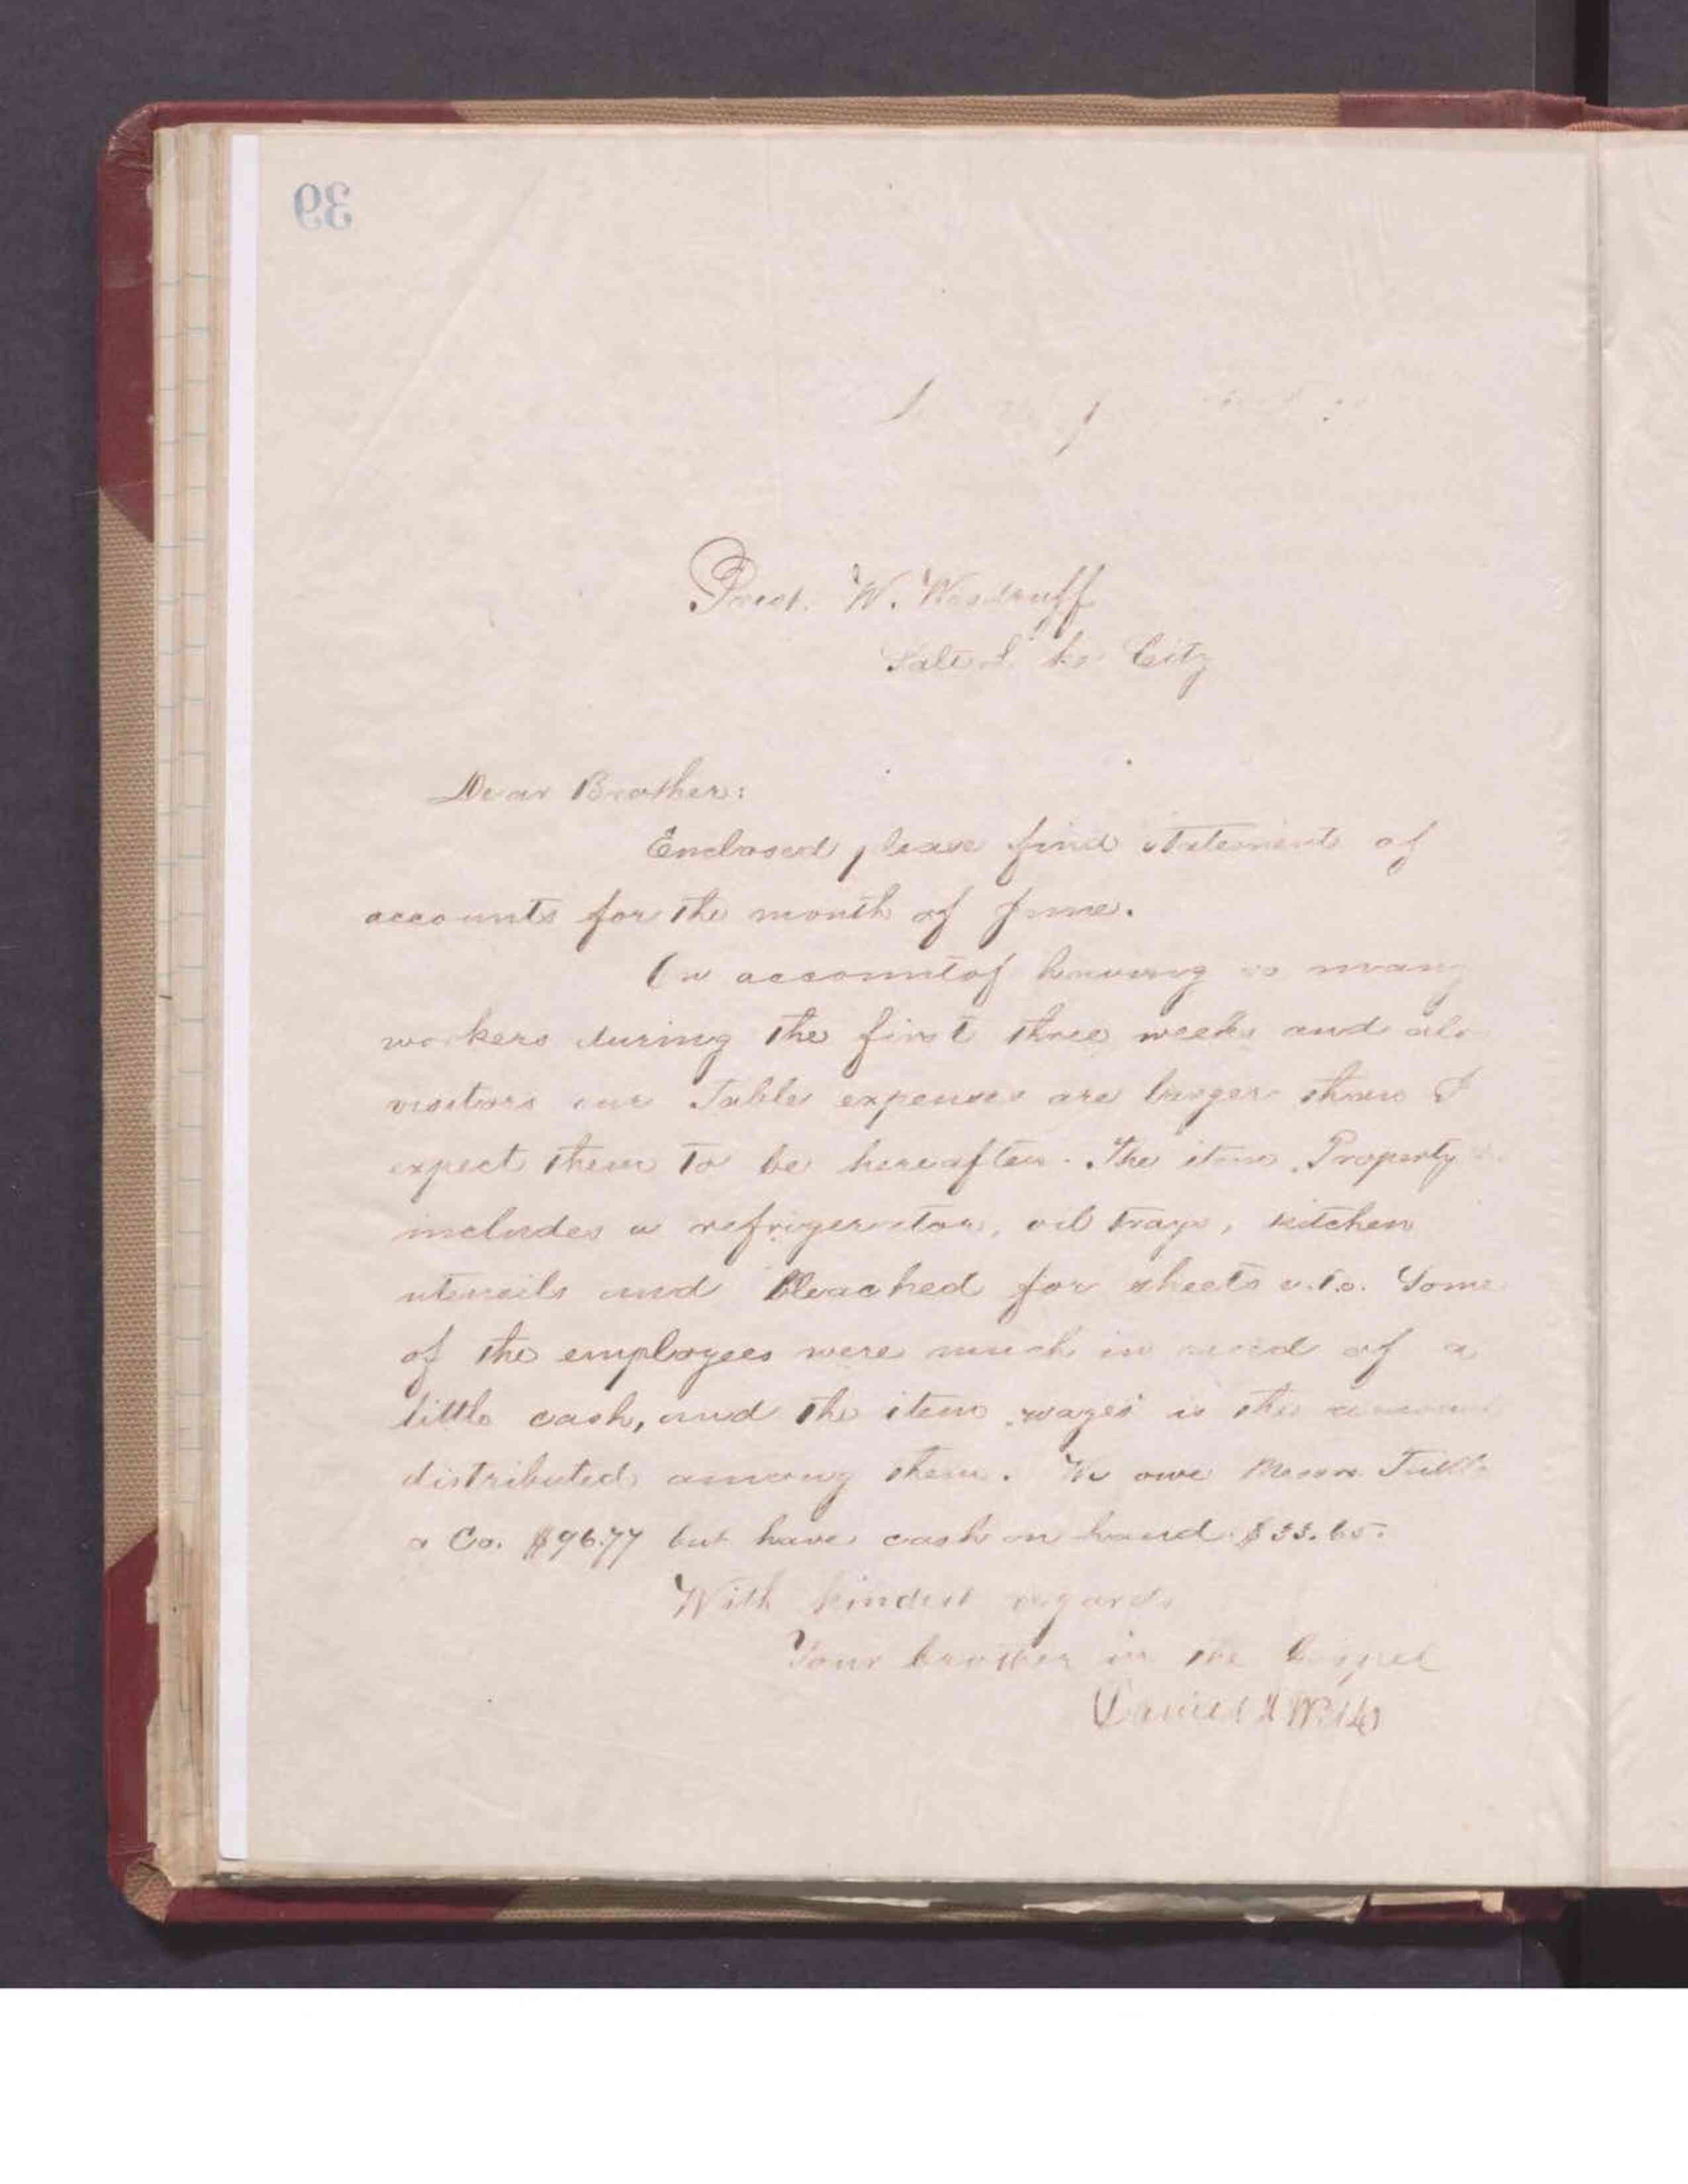 39
Prest. W. Woodruff
Salt Lake City
Dear Brother:
Enclosed please find statements of
accounts for the month of June.
On account of having so many
workers during the first three weeks and also
visitors our Table expenses are larger than I
expect them to be hereafter. The item Property
includes a refrigerator, oil trays, kitchen
utensils and Bleached for sheets etc. Some
of the employees were much in need of a
little cash, and the item "wages" is the amount
distributed among them. We owe Messrs Tuttle
& Co. $96.77 but have cash on hand $33.65.
With kindest regards
Your brother in the Gospel
Daniel H Wells